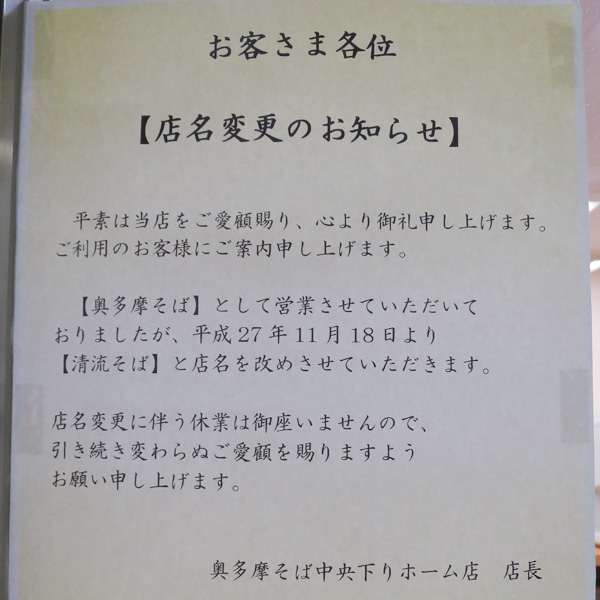 お客さま各位
【店名変更のお知らせ】
平素は当店をご愛顧賜り、心より御礼申し上げます。
ご利用のお客様にご案内申し上げます。
【奥多摩そば】として営業させていただいて
おりましたが、平成27年11月18日より
【清流そば】と店名を改めさせていただきます。
店名変更に伴う休業は御座いませんので、
引き続き変わらぬご愛顧を賜りますよう
お願い申し上げます。
奥多摩そば中央下りホーム店　店長